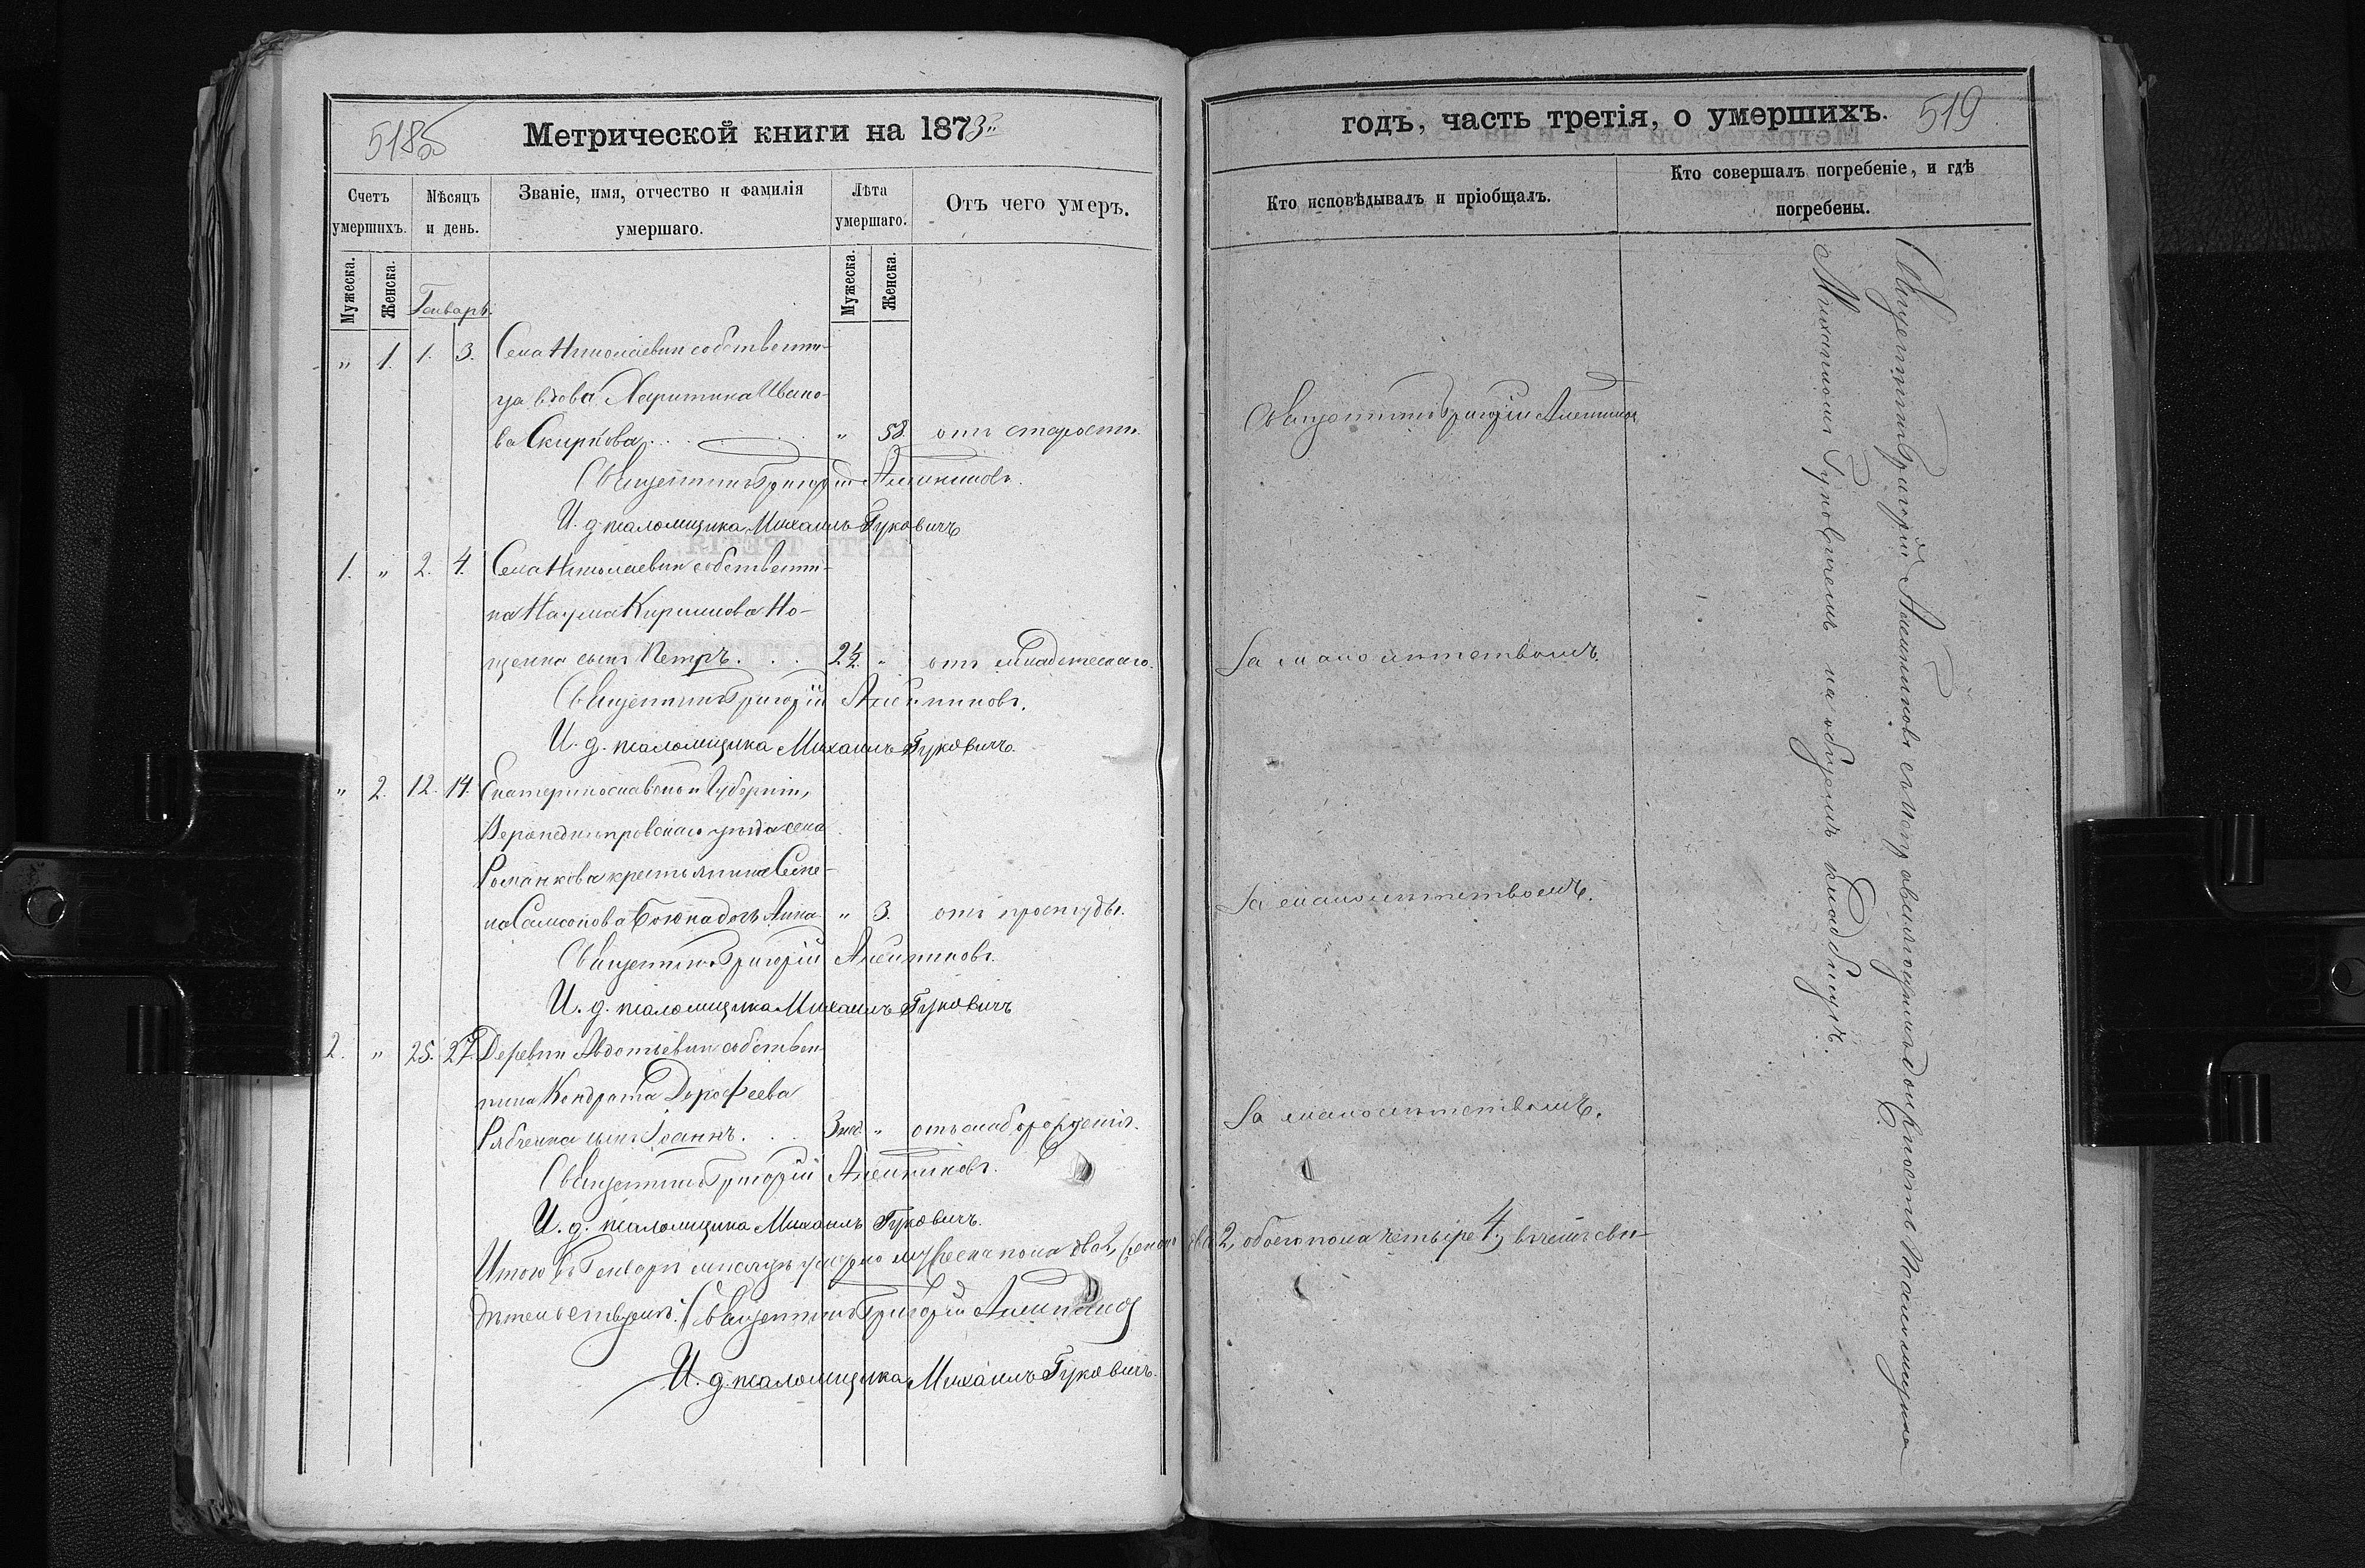 518об
Метрической книги на 1873
Счетъ умершихъ.
Мѣсяцъ и день.
Званіе, имя, отчество и фамилія умершаго.
Лѣта умершаго.
Отъ чего умеръ.
Мужеска.
Женска.
Генварь.
Мужеска.
Женска.
„ 1. 1. 3. Села Николаевки собственни-
ца вдова Харитина Ивано-
ва Скиркова . . . „ 58. отъ старости.
Священникъ Григорій Алейниковъ.
И. д. псаломщика Михаилъ Гуковичъ
1. „ 2. 4. Села Николаевки собственни-
ка Наума Кириллова Но-
щенка сынъ Петръ . . . 2½. „ отъ младенческаго.
Священникъ Григорій Алейниковъ.
И. д. псаломщика Михаилъ Гуковичъ.
„ 2. 12. 14. Екатеринославской Губерніи,
Верхнеднѣпровскаго уѣзда села
Романкова крестьянина Семе-
на Самсонова дочь Анна „ 3. отъ простуды.
Священникъ Григорій Алейниковъ.
И. д. псаломщика Михаилъ Гуковичъ
2. „ 25. 27. Деревни Авдотьевки собствен-
ника Кондрата Дорофеева
Рябченка сынъ Іоаннъ . . . 3 нед. „ отъ слаборожденія.
Священникъ Григорій Алейниковъ.
И. д. псаломщика Михаилъ Гуковичъ.
Итого въ Генварѣ мѣсяцѣ умерло мужеска пола два 2, женска два 2, обоего пола четыре 4, въ чемъ сви-
дѣтельствуемъ: Священникъ Григорій Алейниковъ
И. д. псаломщика Михаилъ Гуковичъ.
годъ, часть третія, о умершихъ.
519
Кто исповѣдывалъ и пріобщалъ.
Кто совершалъ погребеніе, и гдѣ погребены.
Священникъ Григорій Алейниковъ
За малолѣтствомъ.
За малолѣтствомъ.
За малолѣтствомъ.
Священникъ Григорій Алейниковъ съ исправляющимъ должность Псаломщика
Михаиломъ Гуковичемъ на общемъ кладбищѣ.